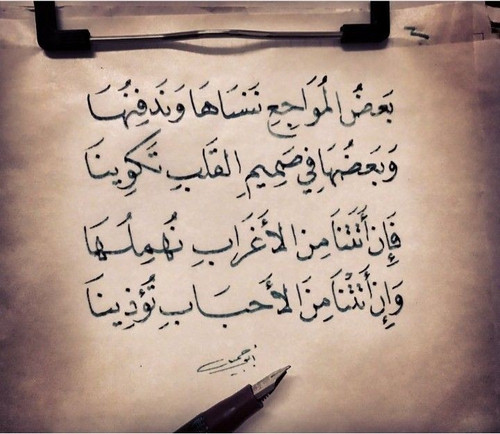 بَعضُ المُوَاجِعِ نَنسَاهَا وَنَدفِنُهَا
وَبَعضُهَا فِي صَمِيمِ القَلبِ تَكوِينَا
فَإِن أَتَتنَا مِنَ الأَغرَابِ نُهمِلُهَا
وَإِن أَتَتْنَا مِنَ الأَحبَابِ تُؤذِينَا